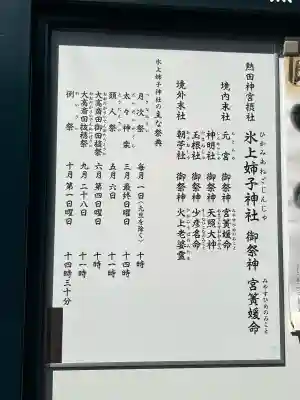 熱田神宮摂社
氷上姉子神社 御祭神 宮簀媛命
ひかみあねごじんじゃ みやすひめのみこと
境内末社 元宮 御祭神 宮簀媛命
神明社 御祭神 天照大神
玉根社 御祭神 少彦名命
境外末社 朝苧社 御祭神 火上老婆霊
氷上姉子神社の主な祭典
月次祭 毎月一日(九月を除く) 十時
太々神楽 三月最終日曜日 十四時
頭人祭 五月六日 十一時
大高斎田御田植祭 六月第四日曜日 十時
大高斎田抜穂祭 九月二十八日 十一時
例祭 十月第一日曜日 十四時三十分